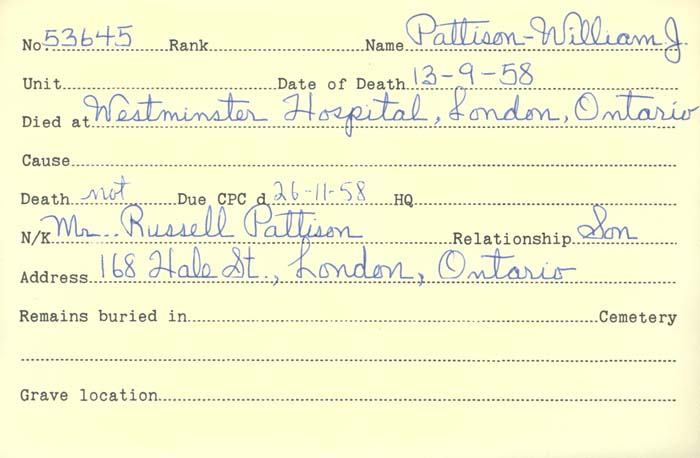 No. 53645 Rank Name Pattison-William J.
Unit Date of Death 13-9-58
Died at Westminster Hospital, London, Ontario
Cause
Death not Due CPC d 26-11-58 HQ
N/K Mr. Russell Pattison Relationship Son
Address 168 Hale St., London, Ontario
Remains buried in Cemetery
Grave location